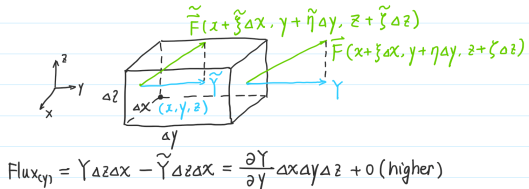 F̃(x+ξ̃Δx, y+η̃Δy, z+ζ̃Δz)
F(x+ξΔx, y+ηΔy, z+ζΔz)
z
y
x
Δz
Δx
(x,y,z)
Ỹ
Y
Δy
Flux(y) = YΔzΔx − ỸΔzΔx = ∂Y/∂y ΔxΔyΔz + o(higher)